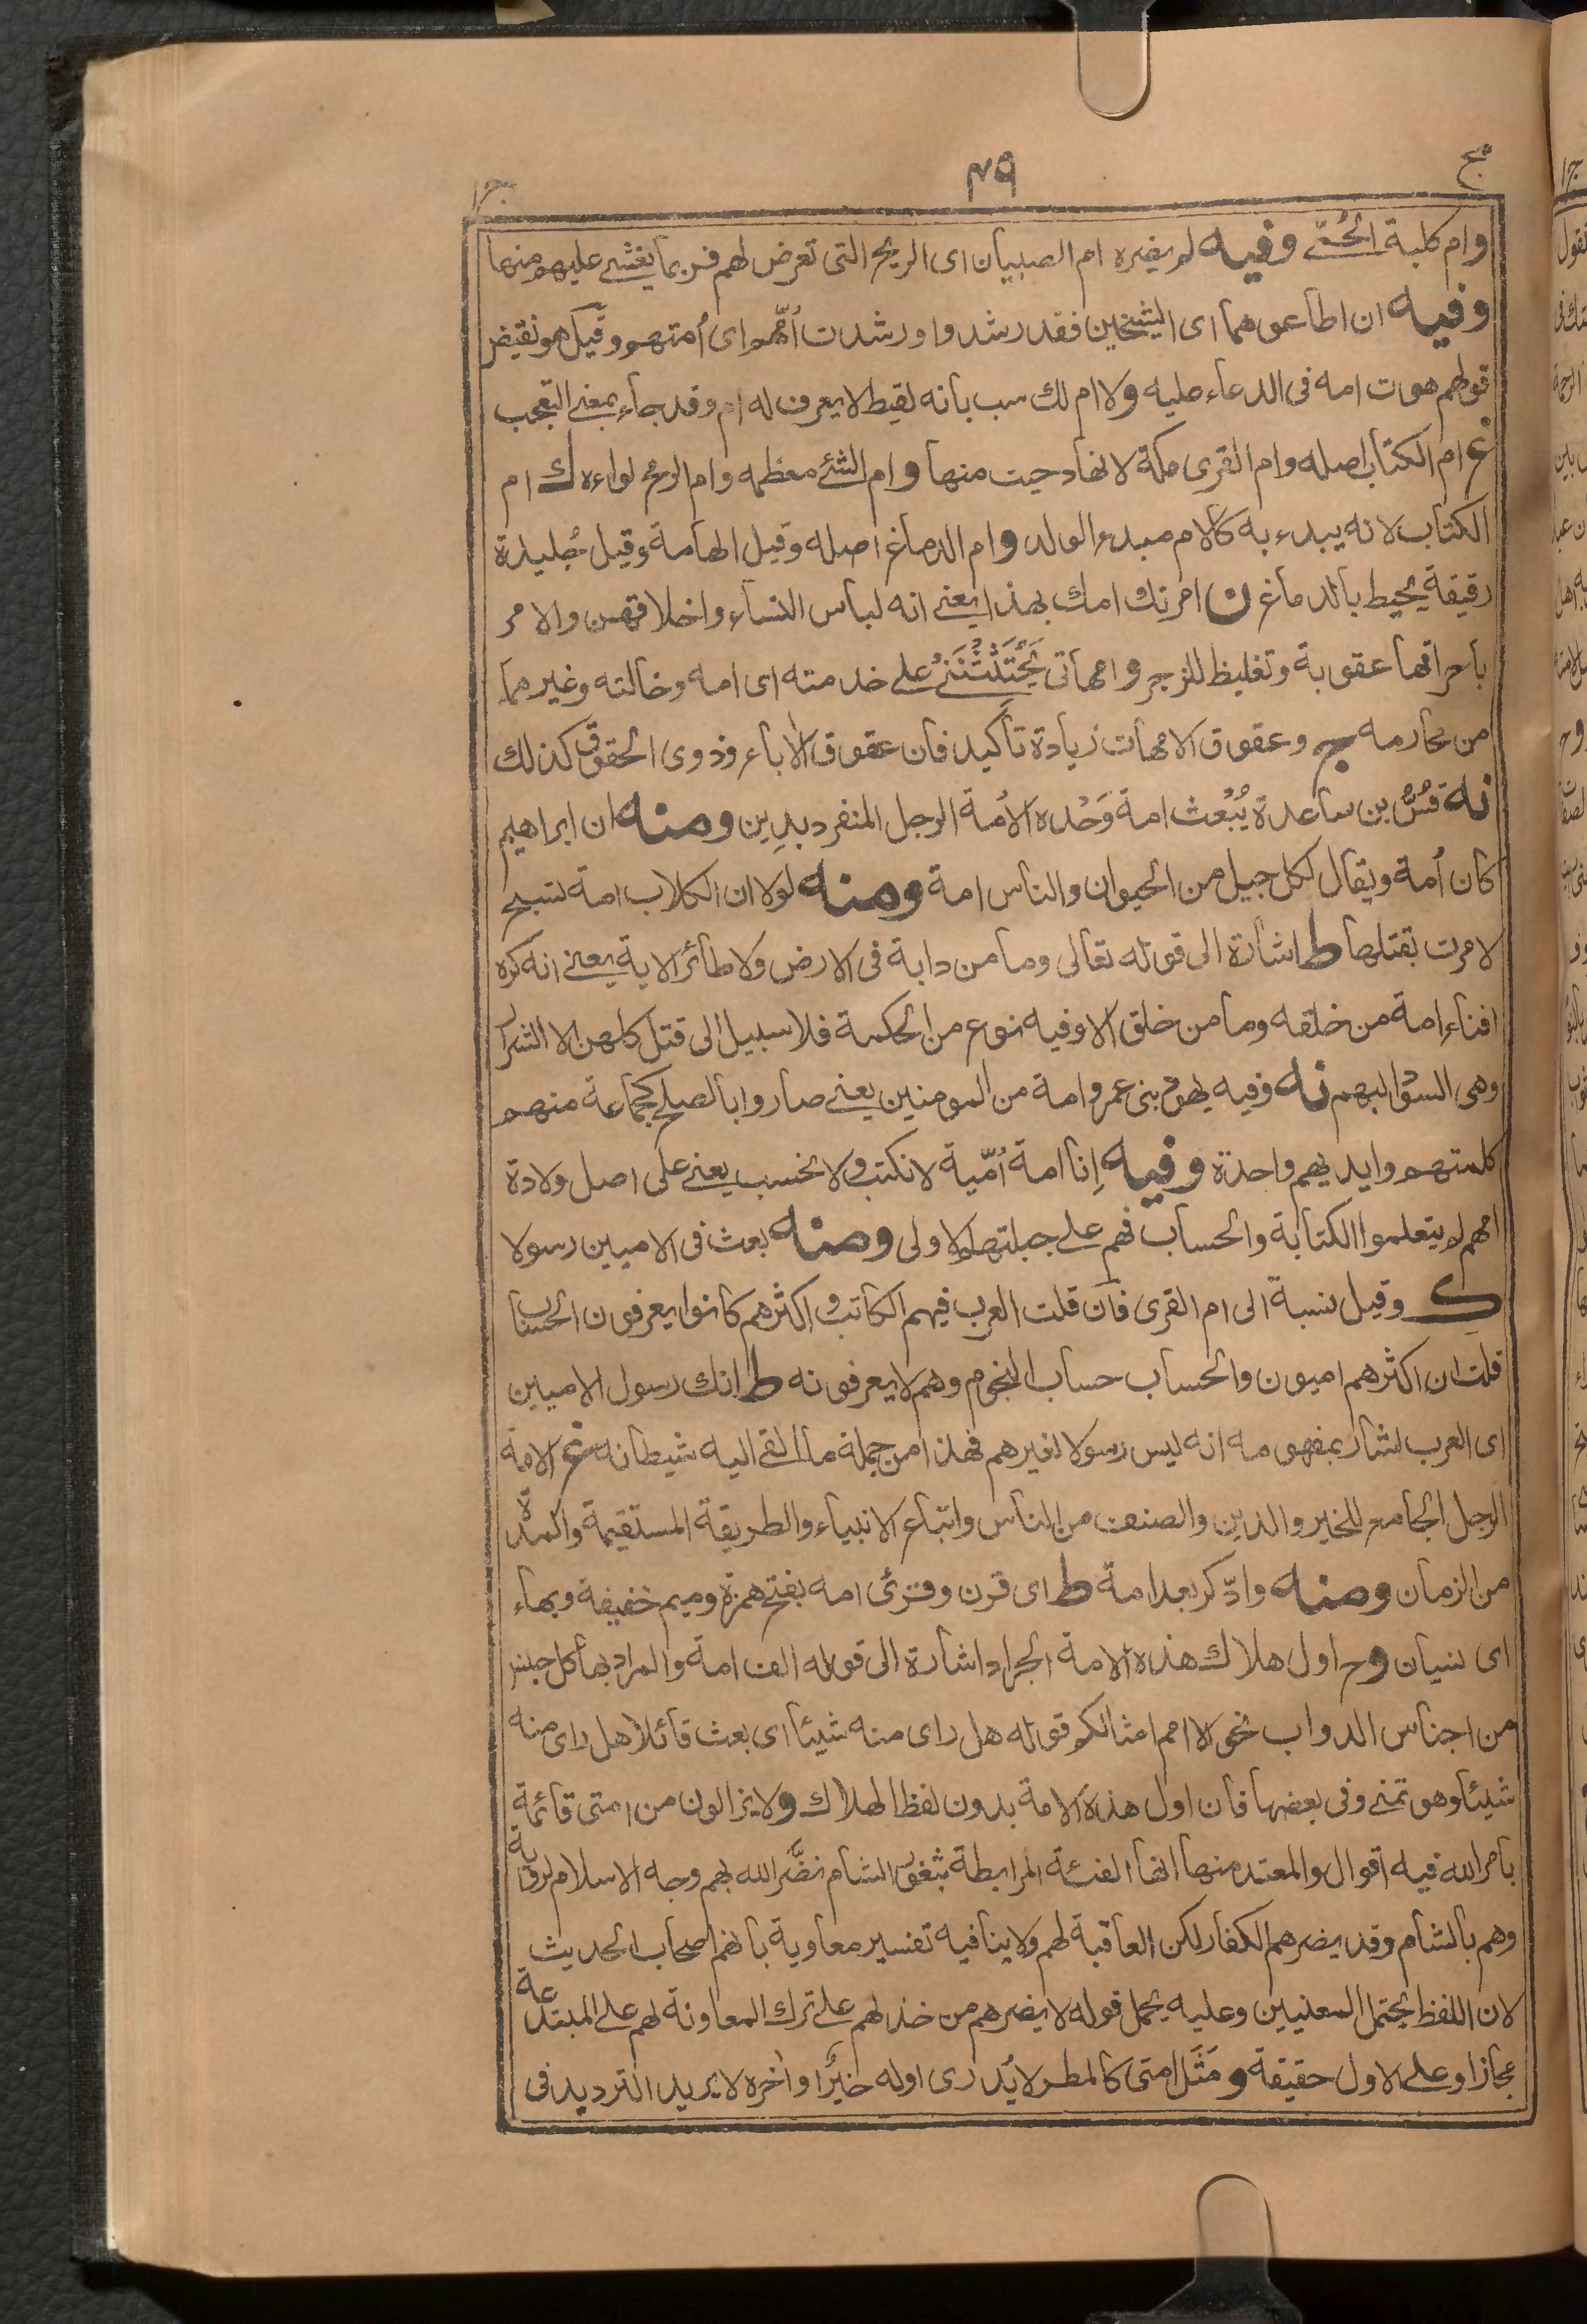 مج ٤٩ ج١
وام كلبة الحُمّى وفيه لم يضره ام الصبيان اى الريح التى تعرض لهم فربما يغشى عليهم منها
وفيه ان اطاعوهما اى الشيخين فقد رشدوا ورشدت اُمّهم اى اُمتهم وقيل هو نقيض
قولهم هوت امه فى الدعاء عليه ولا ام لك سب بانه لقيط لا يعرف له ام وقد جاء بمعنى التعجب
غ ام الكتاب اصله وام القرى مكة لانها دحيت منها وام الشئ معظمه وام الرمح لواءه ك ام
الكتاب لانه يبدء به كالام مبدء الولد وام الدماغ اصله وقيل الهامة وقيل جُليدة
رقيقة يحيط بالدماغ ن امرتك امك بهذا يعنى انه لباس النساء واخلاقهن والامر
باحراقها عقوبة وتغليظ للزجر وامهاتى يَحْثُثْنَنِى على خدمته اى امه وخالته وغيرهما
من محارمه ج وعقوق الامهات زيادة تاكيد فان عقوق الاٰباء وذوى الحقوق كذلك
نه قُسّ بن ساعدة يُبْعث امة وَحْده الاُمة الرجل المنفرد بدِين ومنه ان ابراهيم
كان اُمة ويقال لكل جيل من الحيوان والناس امة ومنه لولا ان الكلاب امة تسبح
لامرت بقتلها ط اشارة الى قوله تعالى وما من دابة فى الارض ولا طائر الاية يعنى انه كره
افناء امة من خلقه وما من خلق الا وفيه نوع من الحكمة فلا سبيل الى قتل كلهن الا الشرار
وهى السود البهم نه وفيه يهود بنى عمرو امة من المومنين يعنى صاروا بالصلح كجماعة منهم
كلمتهم وايديهم واحدة وفيه اِنا امة اُمّية لا نكتب ولا نحسب يعنى على اصل ولادة
امهم لم يتعلموا الكتابة والحساب فهم على جبلتهم الاولى ومنه بعث فى الاميين رسولا
ك وقيل نسبة الى ام القرى فان قلت العرب فيهم الكاتب و اكثرهم كانوا يعرفون الحساب
قلت ان اكثرهم اميون والحساب حساب النجوم وهم لا يعرفونه ط انك رسول الاميين
اى العرب اشار بمفهومه انه ليس رسولا لغيرهم فهذا من جملة ما القى اليه شيطانه غ الامة
الرجل الجامع للخير والدين والصنف من الناس واتباع الانبياء والطريقة المستقيمة والمدة
من الزمان ومنه وادّكر بعد امة ط اى قرن وقرئ امه بفتح همزة وميم خفيفة وبهاء
اى نسيان وح اول هلاك هذه الامة الجراد اشارة الى قوله الف امة والمراد بها كل جنس
من اجناس الدواب نحو الا امم امثالكم قوله هل راى منه شيئا اى بعث قائلا هل راى منه
شيئا وهو تمنى وفى بعضها فان اول هذه الامة بدون لفظ الهلاك ولا يزالون من امتى قائمة
بامر الله فيه اقوال والمعتمد منها انها الفئة المرابطة بثغور الشام نضّر الله بهم وجه الاسلام لرواية
وهم بالشام وقد يضرهم الكفار لكن العاقبة لهم ولا ينافيه تفسير معاوية بانهم اصحاب الحديث
لان اللفظ يحتمل المعنيين وعليه يحمل قوله لا يضرهم من خذلهم على ترك المعاونة لهم على المبتدعة
مجازا وعلى الاول حقيقة ومَثَل امتى كالمطر لا يُدرى اوله خيرٌ او اٰخره لا يريد الترديد فى